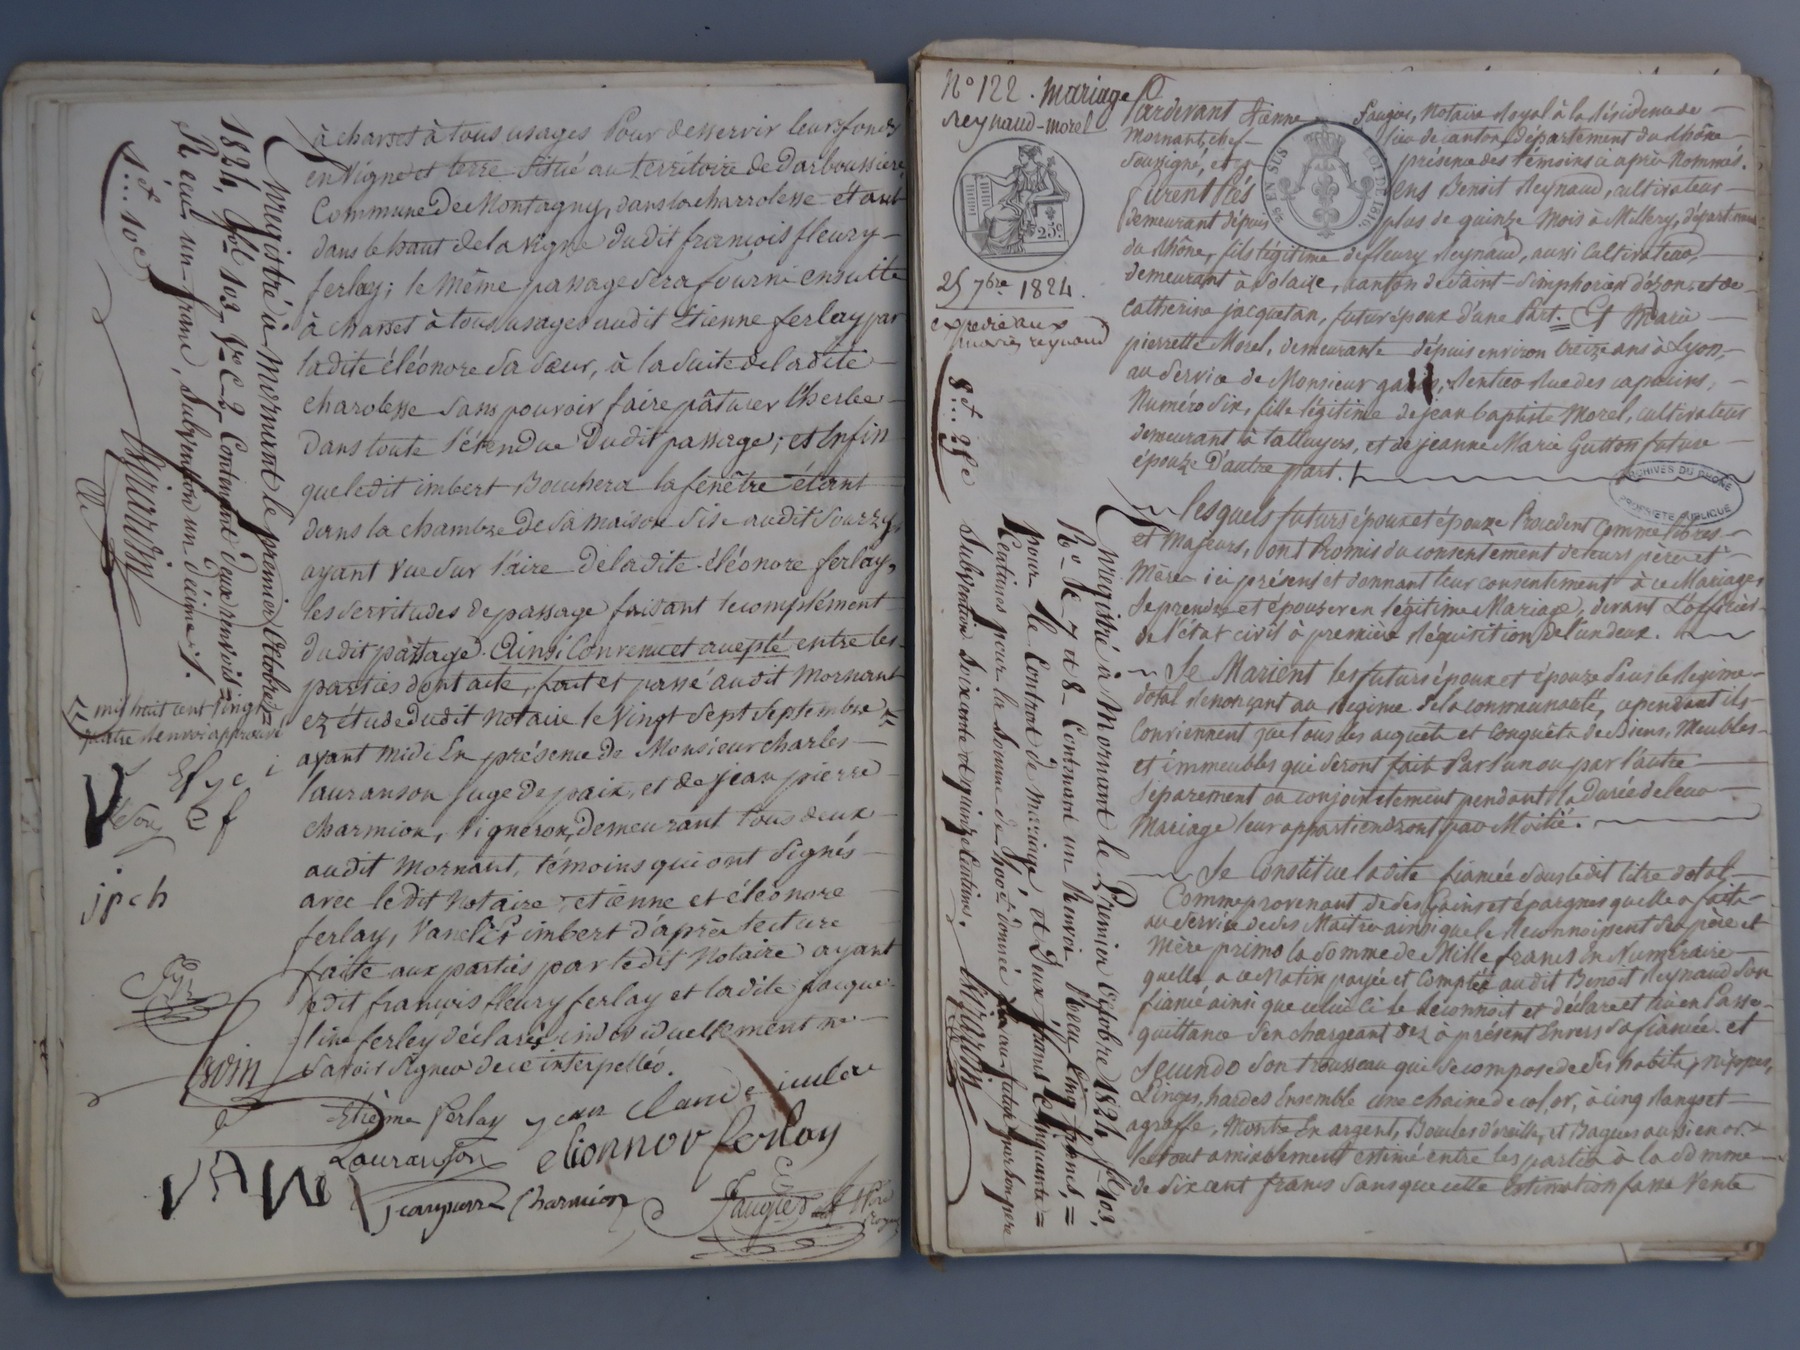 à charset à tous usages Pour desservir leurs fonds
en Vigne et terre Situé au territoire de Darboussière,
Commune de Montagny, dans la charrolesse étant
dans le haut de la Vigne dudit francois fleury
ferlay; le même passage sera fourni ensuite
à charset à tous usages audit Etienne ferlay par
ladite éléonore Sa Sœur, à la Suite de ladite
charolesse Sans pouvoir faire pâturer l'herbe
dans toute l'étendue dudit passage; et Enfin
que ledit imbert Bouchera la fenêtre étant
dans la chambre de Sa maison Sise audit Sourzy,
ayant Vue Sur l'aire de ladite éléonore ferlay,
les Servitudes de passage faisant le complément
dudit passage. Ainsi Convenu et accepté entre les
parties dont acte, fait et passé audit Mornant
ez étude dudit Notaire le Vingt Sept Septembre
avant midi En présence de Monsieur charles
lauranson juge de paix, et de jean pierre
charmion, Vigneron, demeurant tous deux
audit Mornant, témoins qui ont Signés
avec ledit Notaire etienne et éléonore
ferlay, Van et imbert d'après lecture
faite aux parties par ledit Notaire ayant
ledit françois fleury ferlay et ladite jacque
line ferley déclarés individuellement ne
Savoir Signer de ce interpellés.
Etienne ferlay jean Claude imber
Lauranson elionnor ferlay
VAN
Jeanpierre Charmion
Faugier
Enregistré à Mornant le premier Octobre
1824, fol 103, Vo C 9 Contenant deux renvois
Reçu un franc, Subvention un décime.
1f 10c
Girardin
mil huit cent vingt
quatre Renvoi approuvé
E f y c i
C f
jpch
No 122. Mariage
Reynaud-Morel
25c
25 7bre 1824.
expedié aux
mariés reynaud
8f 25c
5c EN SUS
LOI DE 1816
Pardevant Etienne Faugier, Notaire Royal à la Résidence de
Mornant, chef lieu de canton, département du Rhône
Soussigné, et présence des témoins ci après Nommés.
Furent Présens Benoit Reynaud, cultivateur
demeurant dépuis plus de quinze mois à Millery, départemen
du Rhône, fils légitime de fleury Reynaud, aussi Cultivateur
demeurant à Solaize, canton de Saint-Simphorien d'ozon, et de
Catherine jacquetan, futur époux d'une Part. Et Marie
pierrette Morel, demeurante dépuis environ treize ans à Lyon,
au Service de Monsieur Rentier Rue des capucins,
Numéro Six, fille légitime de jean baptiste Morel, cultivateur
demeurant à talluyers, et de jeanne Marie Gutton future
épouze D'autre part.
ARCHIVES DU RHÔNE
PROPRIETE PUBLIQUE
lesquels futurs époux et épouze Procedent Comme libres
et Majeurs, ont Promis du consentement de leurs père et
Mère ici présens et donnant leur consentement à ce Mariage,
Se prendre et épouzer en légitime Mariage, devant L'officier
de l'état civil à première Réquisition de l'un deux.
Se Marient les futurs époux et épouze Sous le Regime
dotal Renonçant au Régime de la communauté, cependant ils
Conviennent que tous les acquets et Conquets de Biens, Meubles
et immeubles qui Seront fait Par l'un ou par l'autre
Séparement ou conjointement pendant la Durée de leur
Mariage leur appartiendront par Moitié.
Se Constitue ladite fiancée Sous ledit titre dotal
Comme provenant de Ses Gains et épargnes quelle a faits
au Service de Ses Maitres ainsi que le Reconnoissent Ses père et
Mère primo la Somme de Mille francs En Numéraire
quelle a ce Matin payée et Comptée audit Benoit Reynaud Son
fiancé ainsi que celui ci le Réconnoit et déclare et lui en Passe
quittance S'en chargeant dez à présent Envers Sa fiancée. et
Secundo Son trousseau qui Se compose de Ses habits, nippes,
Linges, hardes Ensemble une chaine de col, or, à cinq Rangs et
agraffe, Montre En argent, Boucles d'oreilles, et Bagues aussi en or.
le tout amiablement estimé entre les parties à la Somme
de Six cent francs Sans que cette Estimation fasse Vente
Enregistré à Mornant le Premier Octobre 1824 fo 103,
Ro Ce 7 et 8 Contenant un Renvoi, Reçu Cinq francs,
pour le Contrat de mariage, et Deux francs Cinquante
Centimes pour la Somme de donnée au futur par Son père
Subvention Soixante et quinze Centimes.
Girardin